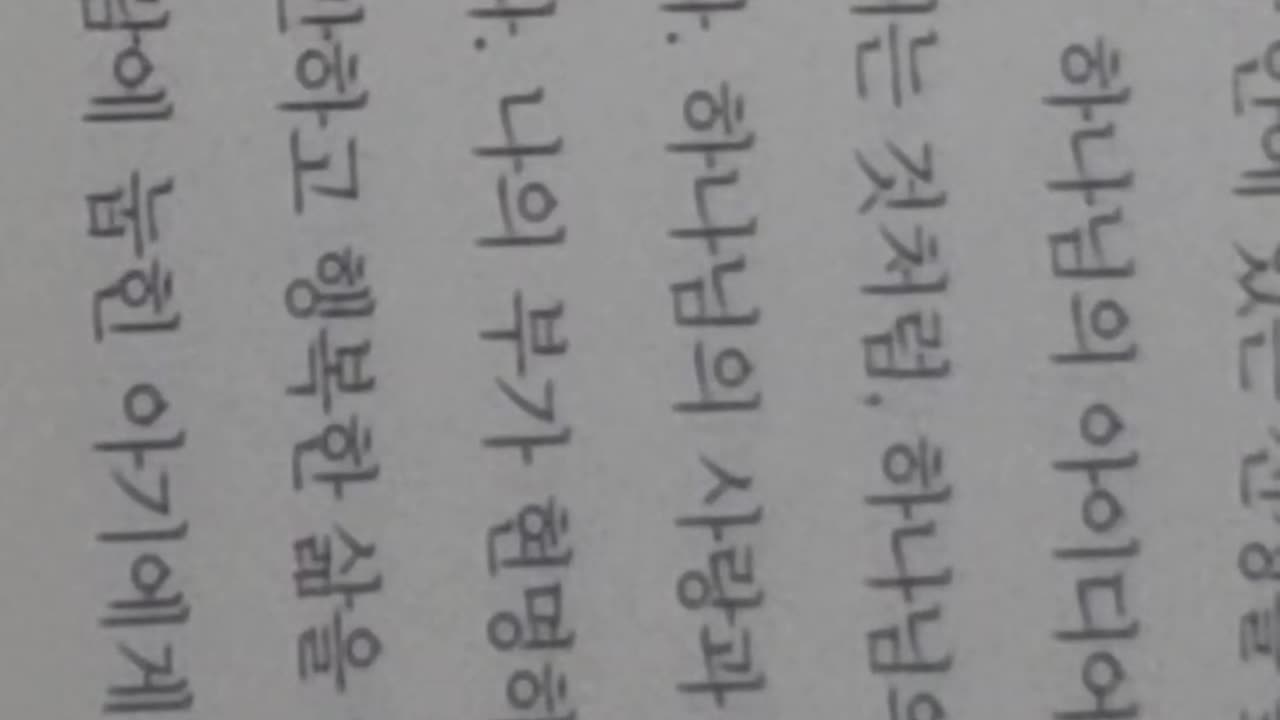 안에 있는
하나님의 아이디어
는 것처럼. 하나님의
다. 하나님의 사랑과
다. 나의 부가 현명하
안하고 행복한 삶을
람에 눕힌 아기에게